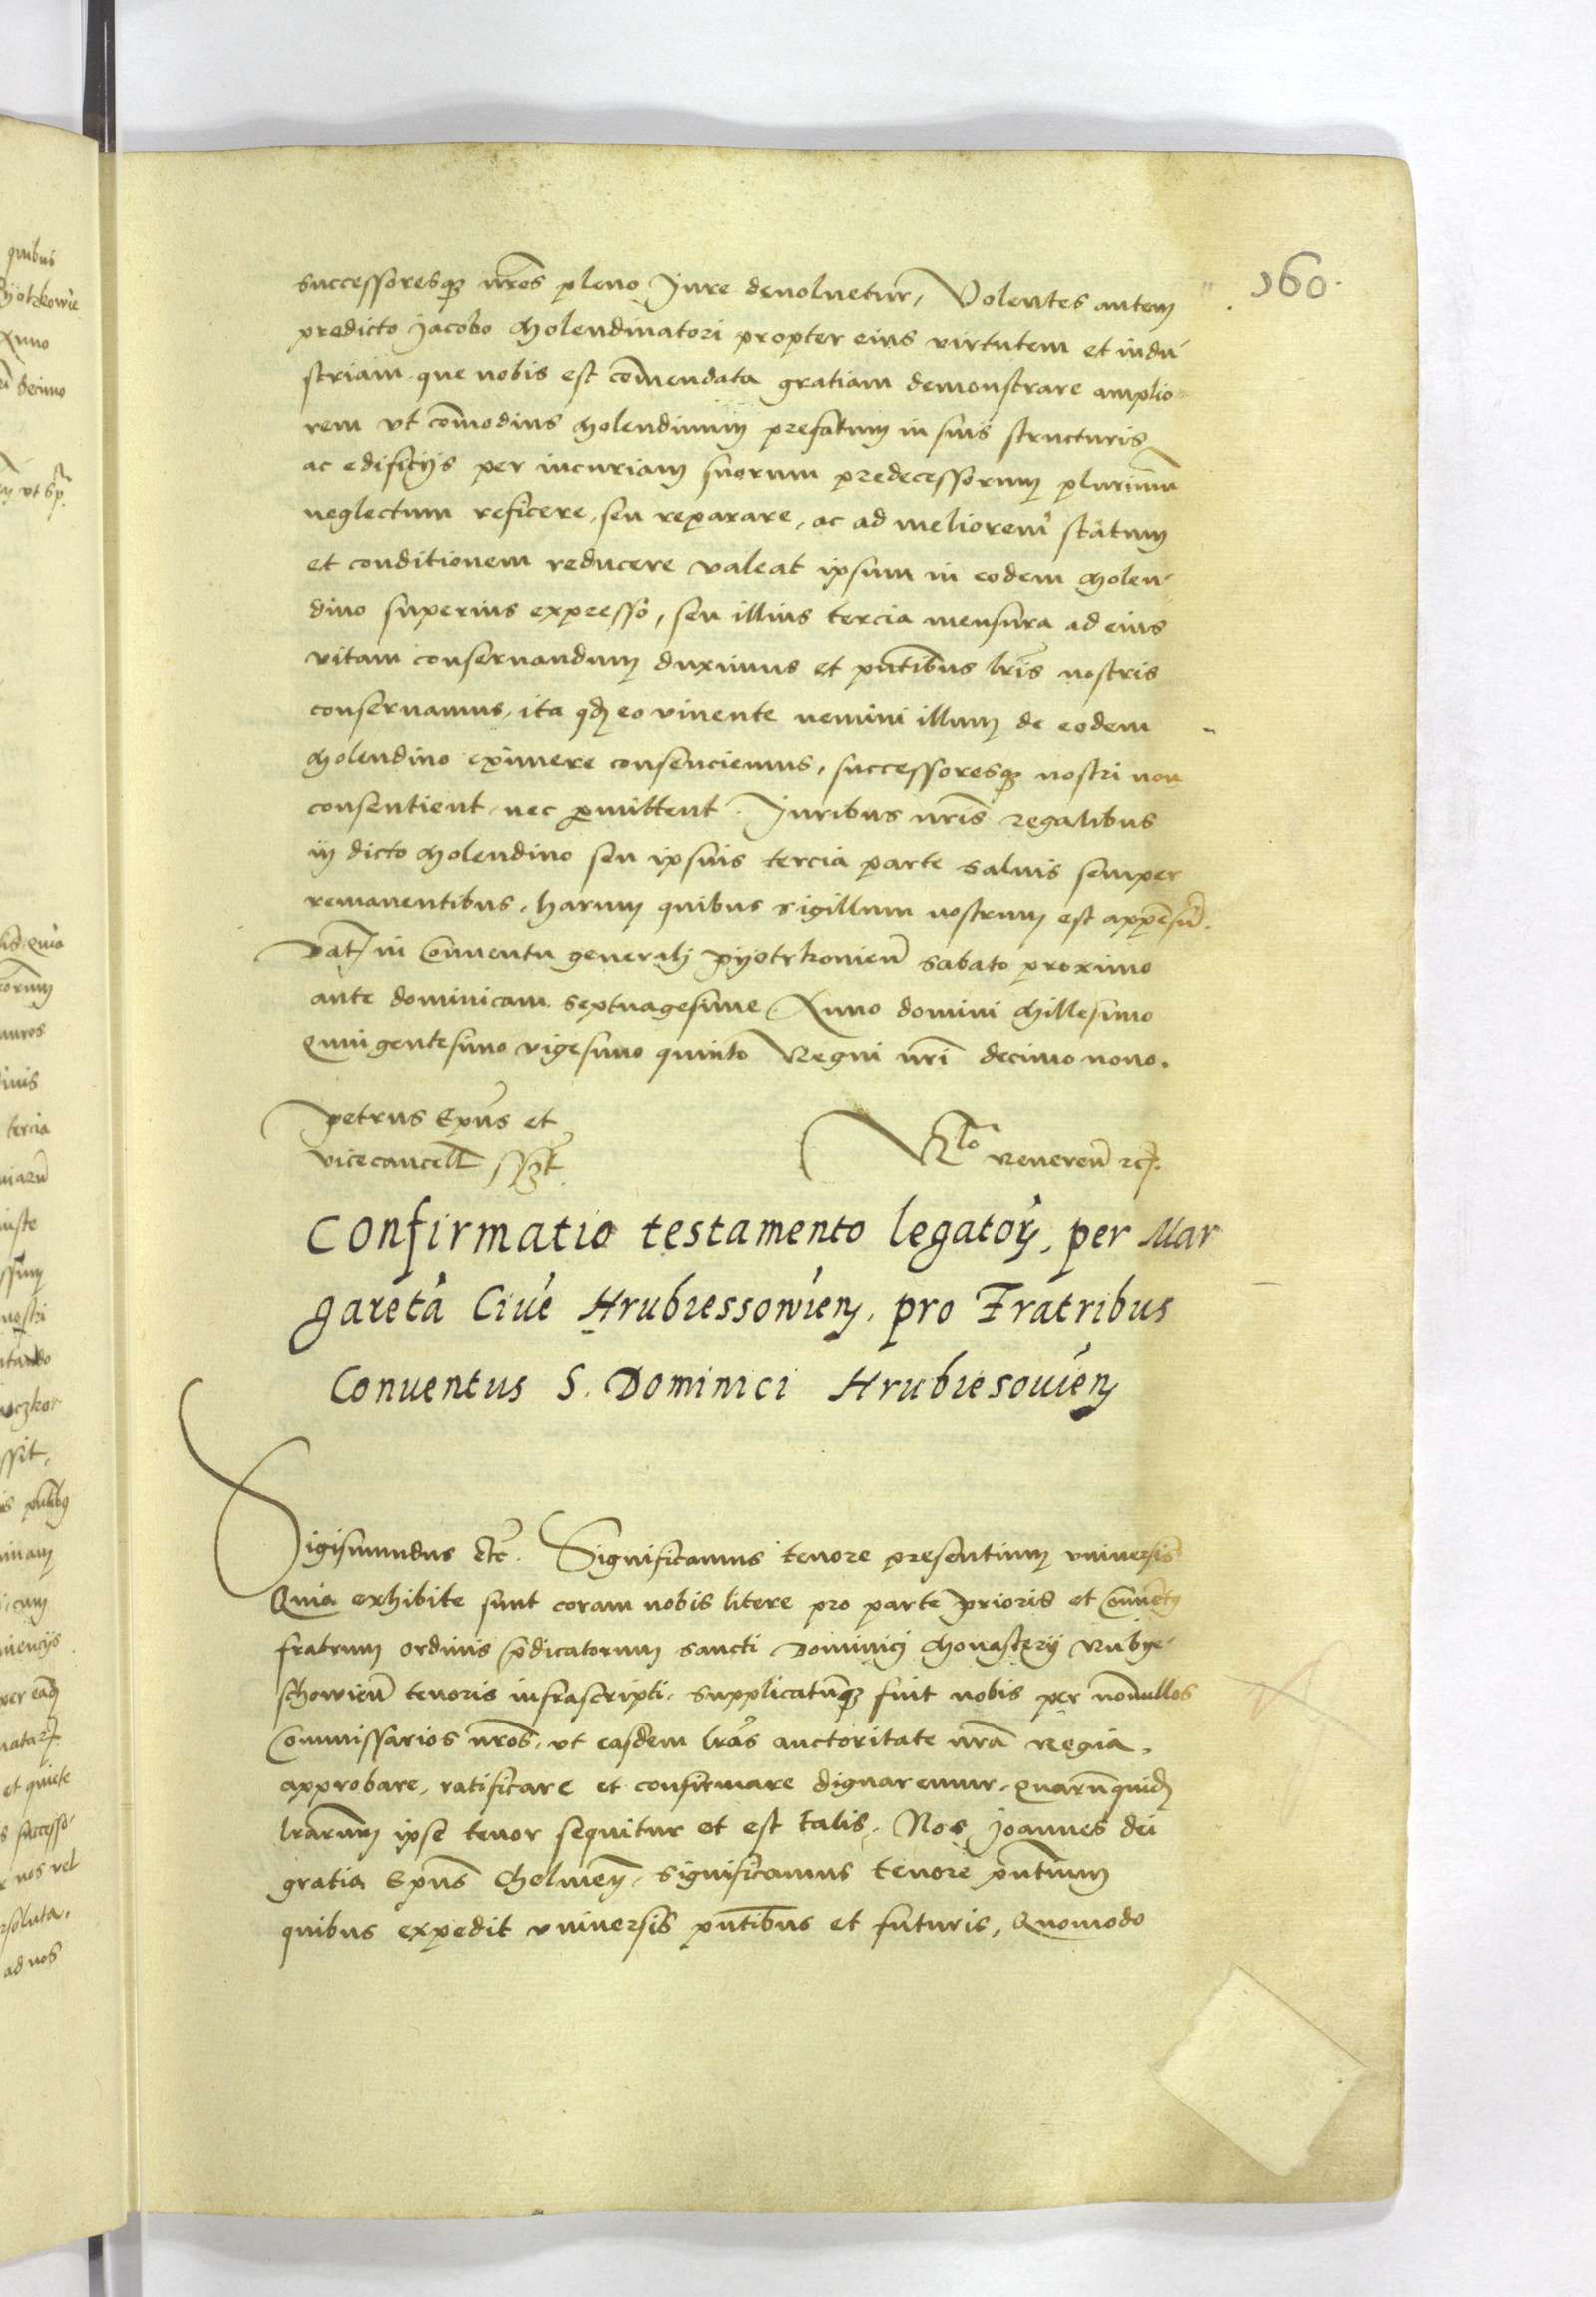 160.
successoresq3 nr̄os pleno Jure deuoluetur, Volentes autem
predicto Jacobo Molendinatori propter eius virtutem et indu
striam que nobis est com̄endata gratiam demonstrare amplio
rem vt com̄odius Molendinum prefatum in suis structuris
ac edificijs per incuriam suorum predecessorum plurimum
neglectum reficere, seu reparare, ac ad meliorem statum
et conditionem reducere valeat ipsum in eodem Molen
dino superius expresso, seu illius tercia mensura ad eius
vitam conseruandum duximus et pn̄tibus lr̄is nostris
conseruamus, ita qd eo viuente nemini illum de eodem
Molendino eximere consenciemus, successoresq3 nostri non
consentient, nec ꝑmittent. Juribus nr̄is regalibus
in dicto Molendino seu ipsius tercia parte saluis semper
remanentibus, harum quibus sigillum nostrum est appēsū.
Dat̄ in Conuentu generalj pyotrkouien̄ sabato proximo
ante dominicam septuagesime Anno domini Millesimo
Quingentesimo vigesimo quinto Regni nr̄i decimo nono.
petrus Ep̄us et
vicecancell̄ sszt.
Rlo Reueren̄ rc̄.
Confirmatio testamento legator̄, per Mar
garetā Ciuē Hrubiessowien̄, pro Fratribus
Conuentus S. Dominici Hrubiesouien̄
Sigismundus etc̄. Significamus tenore presentium vniuersis
Quia exhibite sunt coram nobis litere pro parte prioris et Conuēt9
fratrum ordinis p̄dicatorum sancti Dominicj Monasterij Rubye
schowien̄ tenoris infrascripti, supplicatūq3 fuit nobis per non̄ullos
Commissarios nr̄os, vt easdem lr̄as auctoritate nr̄a Regia,
approbare, ratificare et confirmare dignaremur, Quarūquid
lr̄arum ipse tenor sequitur et est talis, Nos Joannes dei
gratia Ep̄us Chelmen̄, significamus tenore pn̄tium
quibus expedit vniuersis pn̄tibus et futuris, Quomodo